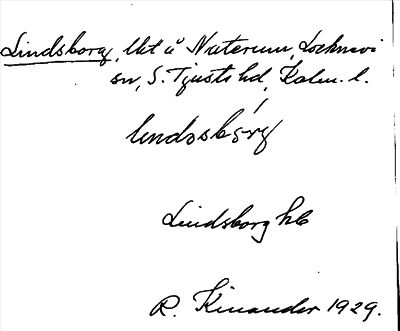 Lindsborg, lht å Näterum, Locknevi
sn, S. Tjusts hd, Kalm. l.
lindsbǫrg
Lindsborg hb
R. Kinander 1929.